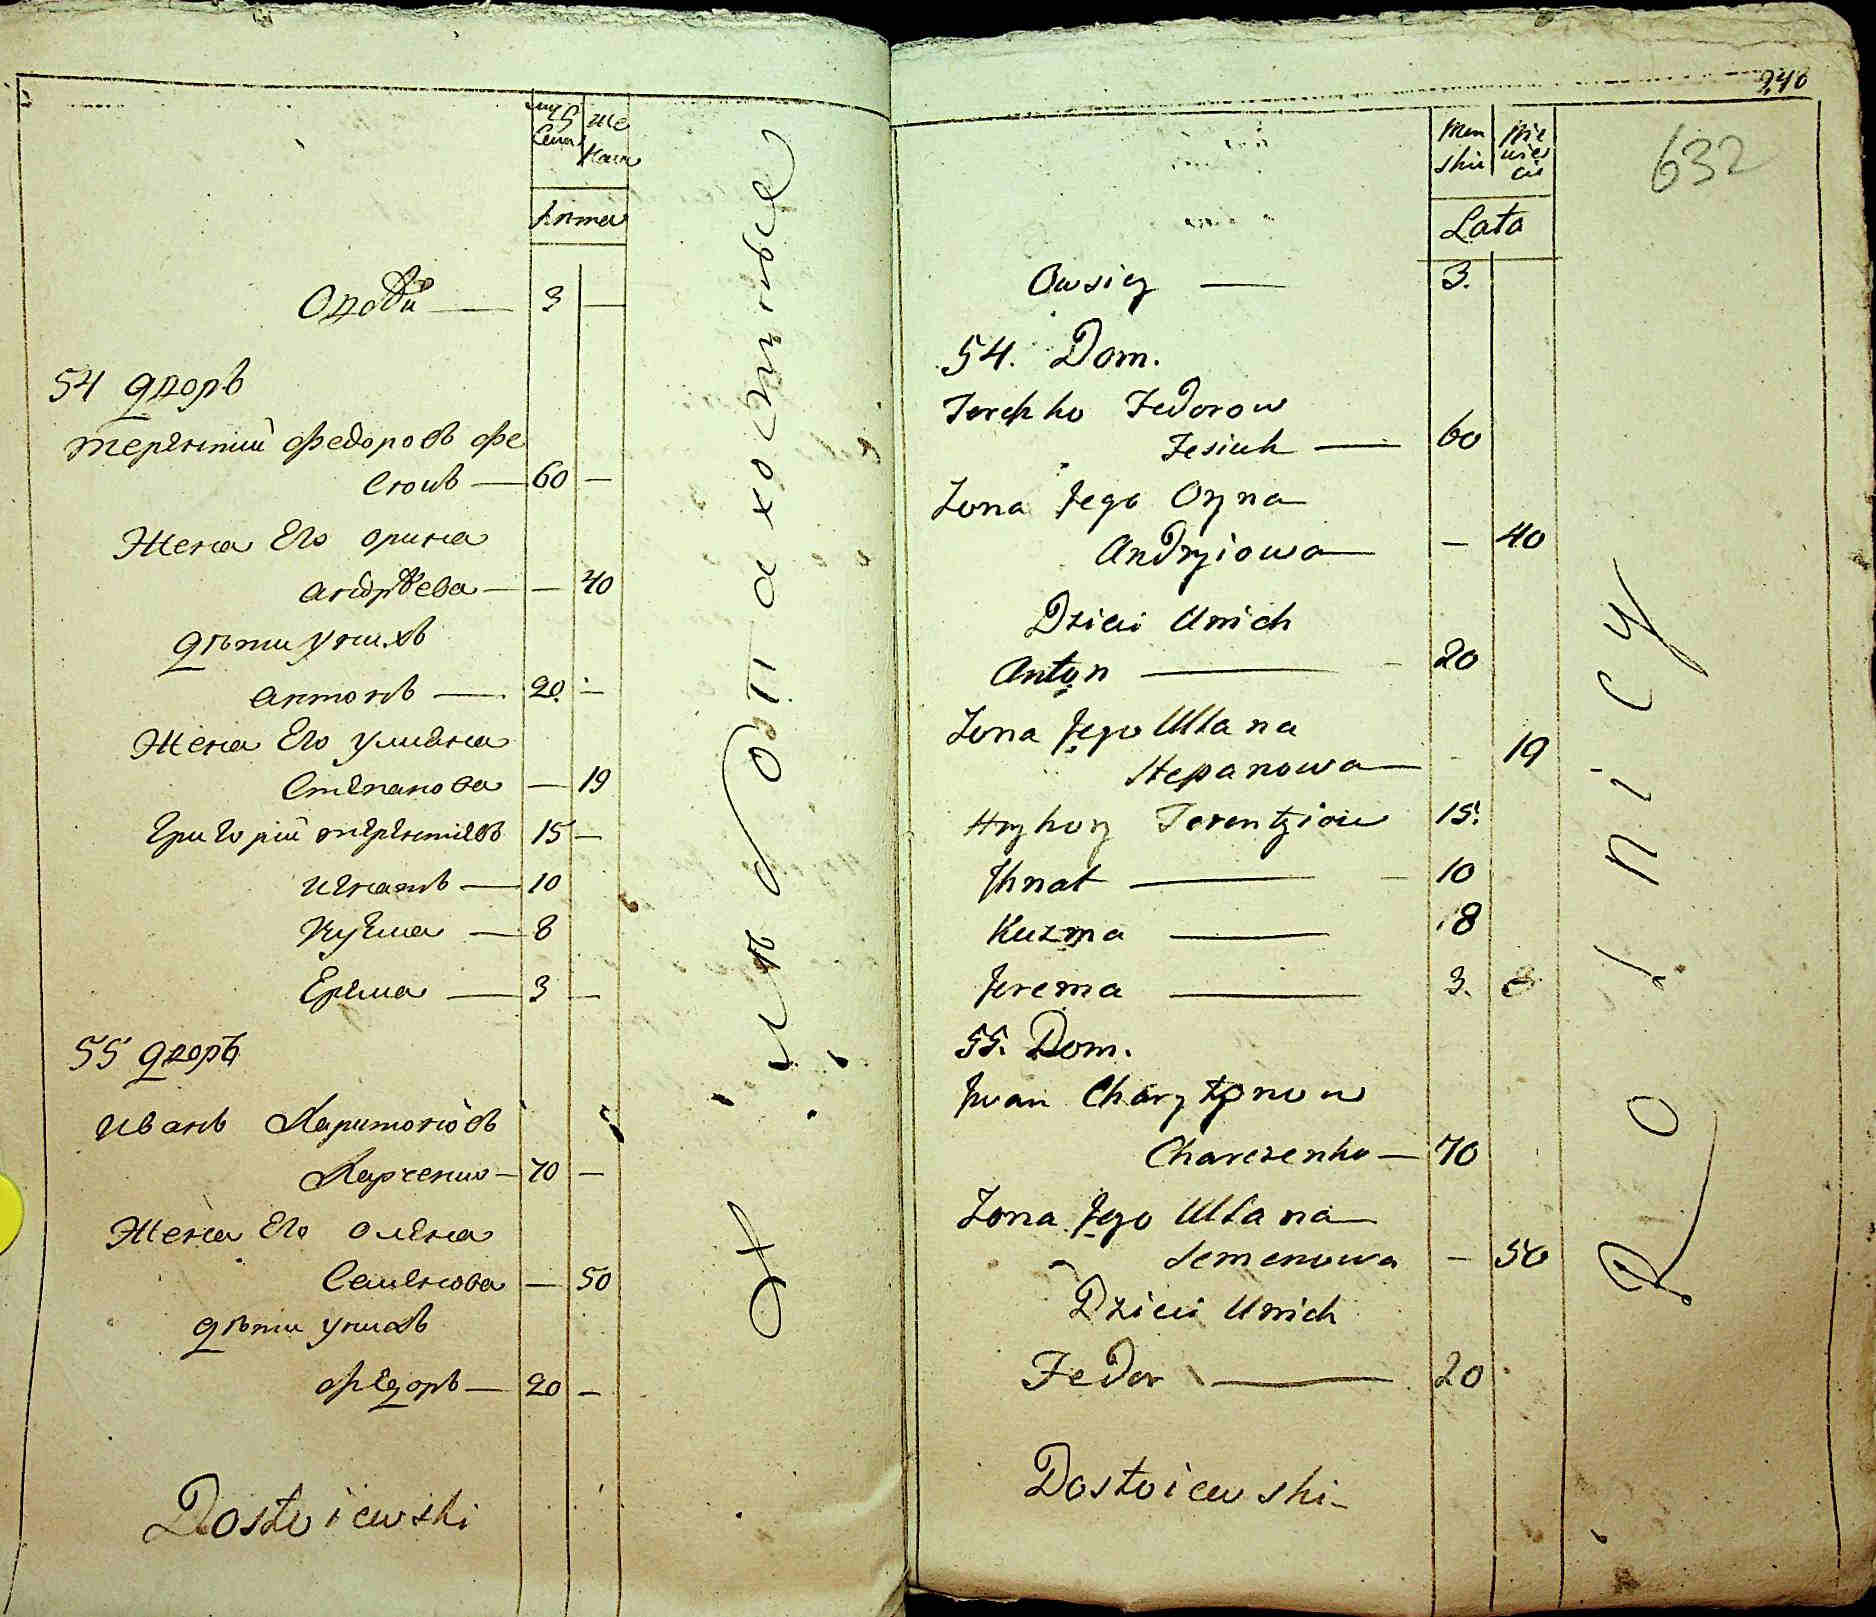 муж
ска
же
нска
лѣта
Овдѣй — 3 —
54 дворъ
терентий федоровъ фе
сюкъ — 60 —
Жена Его орина
андрѣева — — 40
дѣти у нихъ
антонъ — 20 —
Жена Его улияна
Степанова — 19
григорий терентиевъ 15 —
игнатъ — 10
Кузма — 8
Ерема — 3 —
55 дворъ
иванъ Харитоновъ
Харченко — 70 —
Жена Его олена
Семенова — 50
дѣти у нихъ
федоръ — 20 —
Dostoiewski
240
632
Men
skie
Nie
wies
cie
Lata
Owsiey — 3.
54. Dom.
Terehko Fedorow
Fesiuk — 60
Zona Jego Oryna
Andryiowa — 40
Dzieci Unich
Anton — 20
Zona Jego Ullana
Stepanowa — 19
Hryhory Terentyiow 15.
Jhnat — 10
Kuzma — 8
Jerema — 3.
55. Dom.
Jwan Charytonow
Charczenko — 70
Zona Jego Ullana
Semenowa — 50
Dzieci Unich
Fedor — 20
Dostoiewski
Rolnicy